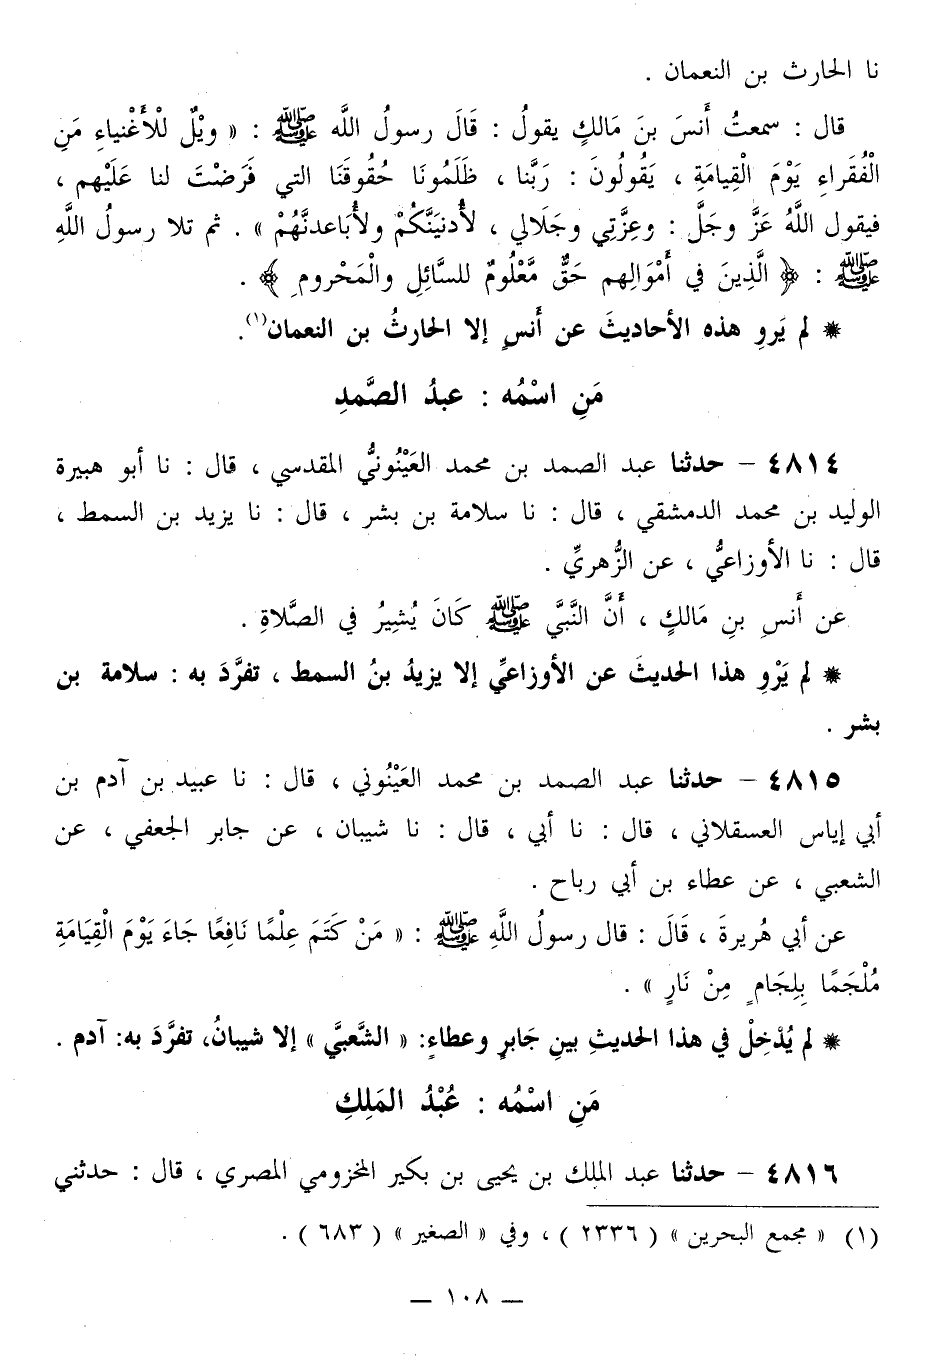 نا الحارث بن النعمان .
قال : سمعتُ أَنسَ بنَ مَالكٍ يقولُ : قَالَ رسولُ اللَّه ﷺ : « ويْلٌ لْلأَغْنياءِ مَنِ
الْفُقَراءِ يَوْمَ الْقِيامَةِ ، يَقُولُونَ : رَبَّنا ، ظَلَمُونَا حُقُوقَنَا التي فَرَضْتَ لنا عَلَيْهم ،
فيقول اللَّهُ عَزَّ وجَلَّ : وعِزَّتِي وجَلَالي ، لأُدنيَنَّكُمْ ولأُبَاعدنَّهُمْ » . ثم تلا رسولُ اللَّهِ
ﷺ : ﴿ الَّذِينَ في أَمْوَالِهم حَقٌّ مَّعْلُومٌ للسَّائِلِ والْمَحْرومِ ﴾ .
* لم يَروِ هذه الأحاديثَ عن أَنسٍ إلا الحارثُ بن النعمان(١).
مَنِ اسْمُه : عبدُ الصَّمدِ
٤٨١٤ – حدثنا عبد الصمد بن محمد العَيْنُونيُّ المقدسي ، قال : نا أبو هبيرة
الوليد بن محمد الدمشقي ، قال : نا سلامة بن بشر ، قال : نا يزيد بن السمط ،
قال : نا الأوزاعيُّ ، عن الزُّهريِّ .
عن أَنسِ بنِ مَالكٍ ، أَنَّ النَّبيَّ ﷺ كَانَ يُشِيرُ في الصَّلاةِ .
* لم يَرْوِ هذا الحديثَ عن الأوزاعيِّ إلا يزيدُ بنُ السمط ، تفرَّدَ به : سلامة بن
بشر .
٤٨١٥ – حدثنا عبد الصمد بن محمد العَيْنُوني ، قال : نا عبيد بن آدم بن
أبي إياس العسقلاني ، قال : نا أبي ، قال : نا شيبان ، عن جابر الجعفي ، عن
الشعبي ، عن عطاء بن أبي رباح .
عن أبي هُريرةَ ، قَالَ : قال رسولُ اللَّهِ ﷺ : « مَنْ كَتَمَ عِلْمًا نَافِعًا جَاءَ يَوْمَ الْقِيَامَةِ
مُلْجَمًا بِلِجَامٍ مِنْ نَارٍ » .
* لم يُدْخِلْ في هذا الحديثِ بينِ جَابرٍ وعطاءٍ: « الشَّعبيَّ » إلا شيبانُ، تفرَّدَ به: آدم .
مَنِ اسْمُه : عُبْدُ المَلِكِ
٤٨١٦ – حدثنا عبد الملك بن يحيى بن بكير المخزومي المصري ، قال : حدثني
(١) « مجمع البحرين » ( ٢٣٣٦ ) ، وفي « الصغير » ( ٦٨٣ ) .
– ١٠٨ –